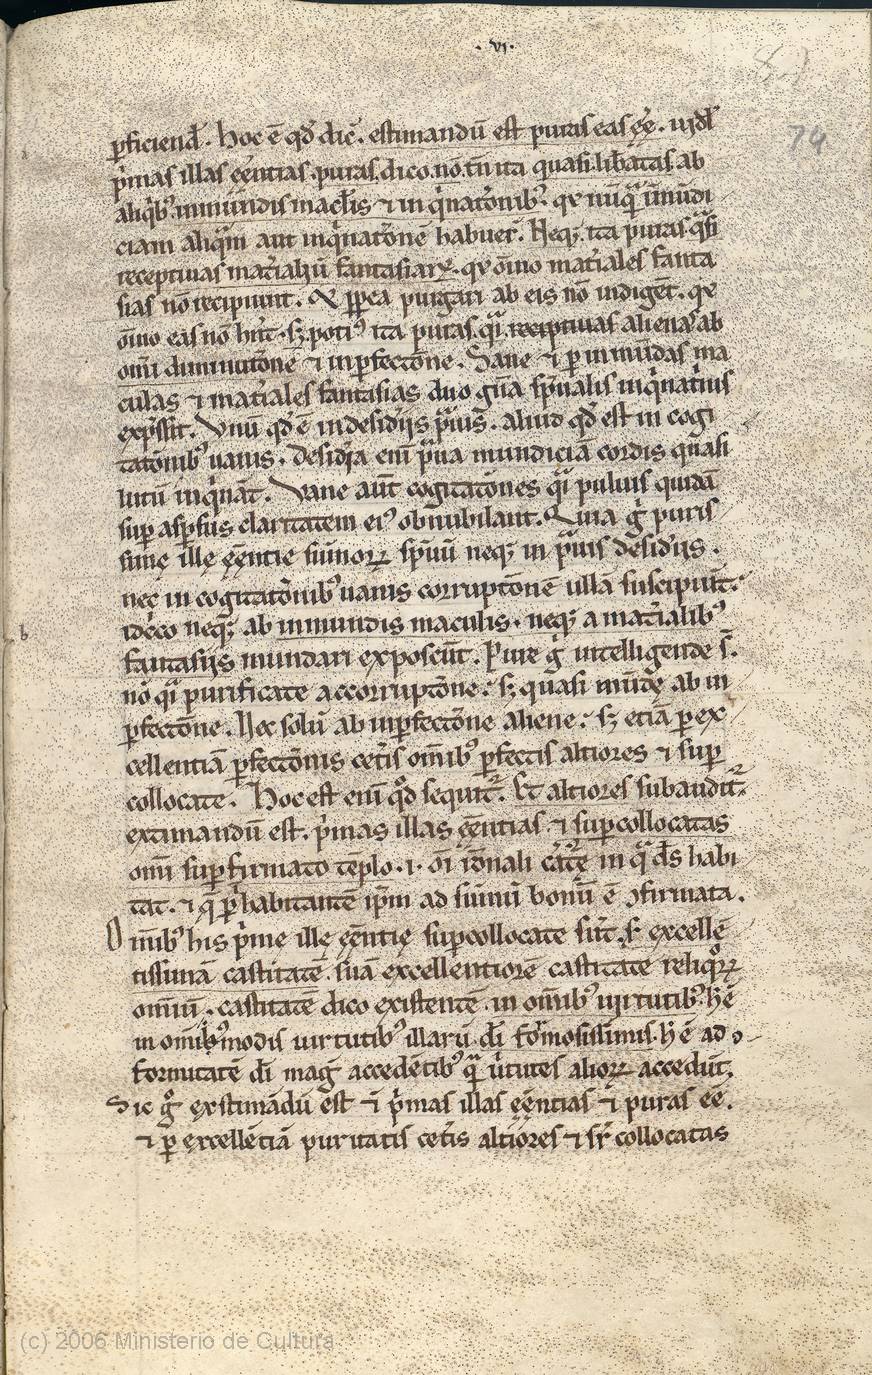 · vi ·
74
ꝑficiend̄. Hoc ē qd̄ dic̄. estimandū est puras eas ęē. uidꝉ
p̓mas illas ęēntias. puras dico. nō tn̄ ita quasi libatas ab
aliq̓bꝰ inmundis macl̄is ⁊ inq̓natōnibꝰ. qꝛ nūq̄ īmūdi
ciam aliq̄m aut inq̓natōnē habuer̄. Neqꝫ ita puras q̄si
receptiuas mat̓ialiū fantasiaꝝ. qꝛ ōīno mat̓iales fanta
sias nō recipiunt. ⁊ ꝓpt̓ea purgari ab eis nō indigēt. qꝛ
ōīno eas nō hn̄t. sꝫ potiꝰ ita puras. q̄i receptiuas alienas ab
om̄i diminutōnē ⁊ inꝑfectōne. Sane ⁊ ꝑ inmūdas ma
culas ⁊ mat̓iales fantasias duo gn̄a sp̄ualis inq̓nat̓ius
exp̄ssit. Vnū qd̄ ē in desid̓ijs p̄uis. aliud qd̄ est in cogi
tatōnibꝰ uanis. Desid̓ia eni p̄ua mundiciā cordis quasi
lutū inq̓nāt. Vane aūt cogitatōnes q̄i puluis quidā
suꝑ aspsus claritatem eiꝰ obnubilant. Quia g̓ puris
sime ille ęēntie sūmoꝝ sp̄uū neqꝫ in p̄uis desid̓ijs.
nec in cogitatōnibꝰ uanis corruptōnē ullā suscipiūt.
id̓co neqꝫ ab inmundis maculis. neqꝫ a mat̓ialibꝰ
fantasijs mundari exposcūt. Pure g̓ intelligende s̄.
nō q̄i purificate a corruptōne. sꝫ quasi mūdę ab in
ꝑfectōne. Nec solū ab inꝑfectōne aliene. sꝫ etiā ꝑ ex
cellentiā ꝑfectōnis cet̓is om̄ibꝰ ꝑfectis altiores ⁊ suꝑ
collocate. Hoc est eni qd̄ sequit̄. Et altiores subaudit̄
extimandū est. p̓mas illas ęēntias ⁊ suꝑcollocatas
om̄i suꝑfirmato tēplo .i. om̄i rōnali c̄at̄ę in q̄ d̄s habi
tat. ⁊ q̄ ꝑ habitantē ip̄m ad sūmū bonū ē ꝯfirmata.
Om̄ibꝰ his p̓me illę ęēntię suꝑcollocate sūt. s̄ excellē
tissimā castitatē. suā excellentiorē castitate reliq̓ꝝ
omniū. castitatē dico existentē in om̄ibꝰ uirtutibꝰ. h̄ ē
in om̄ibꝰ modis uirtutibꝰ illarū di formosissimis. h̄ ē ad ꝯ
formitatē di mag̓ accedētibꝰ q̄ ūtutes alioꝝ accedūt.
Sic g̓ exstimādū est ⁊ p̓mas illas ęēntias ⁊ puras ēē.
⁊ ꝑ excellētiā puritatis cet̓is altiores ⁊ sr̄ collocatas
b
(c) 2006 Ministerio de Cultura